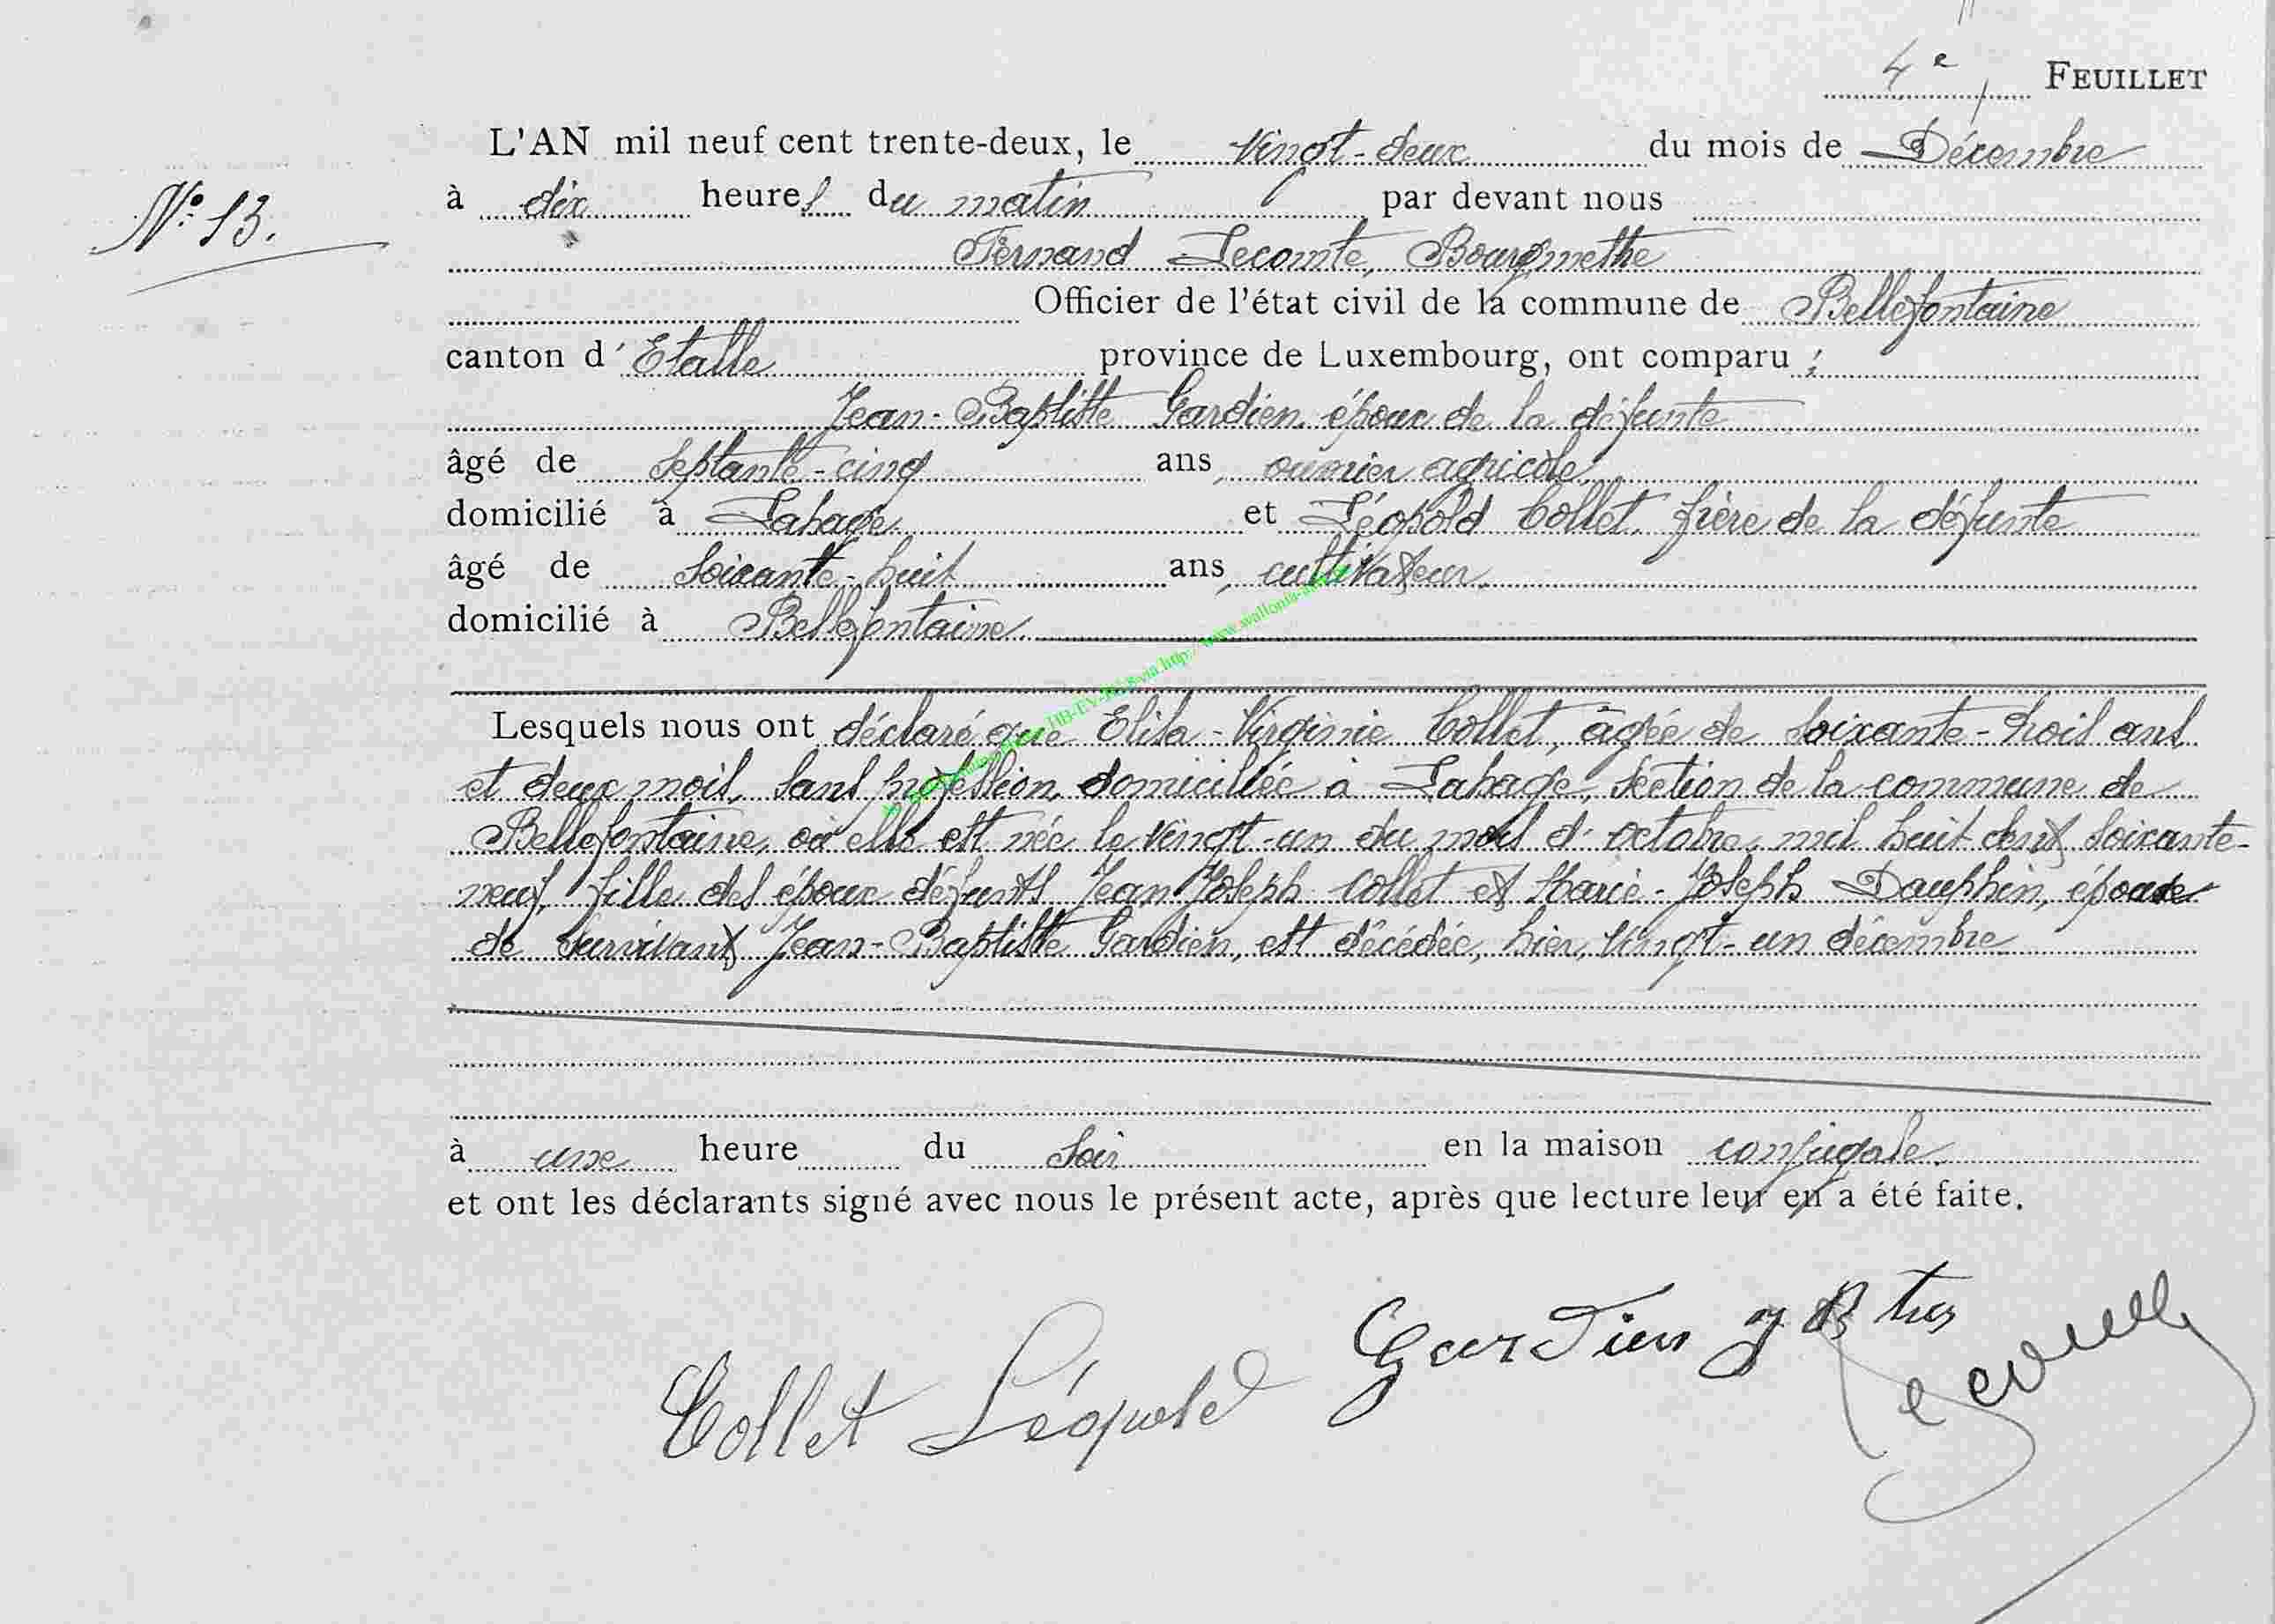 4e FEUILLET
L'AN mil neuf cent trente-deux, le vingt-deux du mois de Décembre
N° 13.
à dix heures du matin par devant nous
Fernand Lecomte, Bourgmestre
Officier de l'état civil de la commune de Bellefontaine
canton d'Etalle province de Luxembourg, ont comparu :
Jean-Baptiste Gardien, époux de la défunte
âgé de septante-cinq ans, ouvrier agricole,
domicilié à Lahage et Léopold Collet, frère de la défunte
âgé de soixante-huit ans, cultivateur,
domicilié à Bellefontaine
Lesquels nous ont déclaré que Elisa-Virginie Collet, âgée de soixante-trois ans
et deux mois, sans profession, domiciliée à Lahage, section de la commune de
Bellefontaine, où elle est née le vingt-un du mois d'octobre, mil huit cent soixante-
neuf, fille des époux défunts Jean-Joseph Collet et Marie-Joseph Dauphin, épouse
de survivant Jean-Baptiste Gardien, est décédée, hier, vingt-un décembre
à une heure du soir en la maison conjugale.
et ont les déclarants signé avec nous le présent acte, après que lecture leur en a été faite.
Collet Léopold Gardien J Bte Lecomte